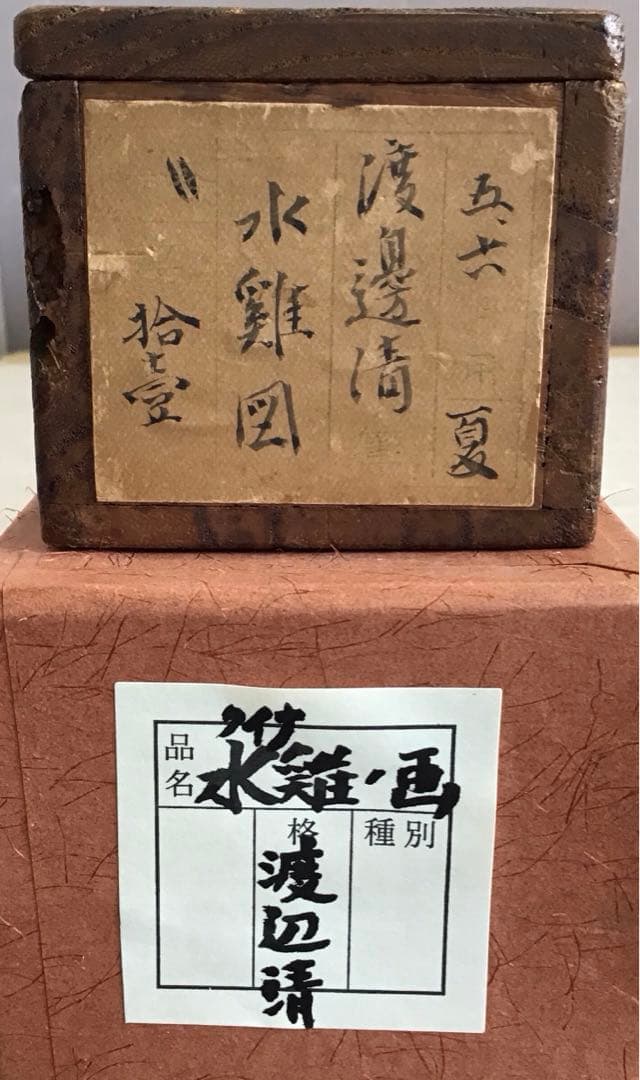 五、六 夏
渡邊清
水雞図
〃 拾壹
クイナ
品名 水雞ノ画
格
種別
渡辺清